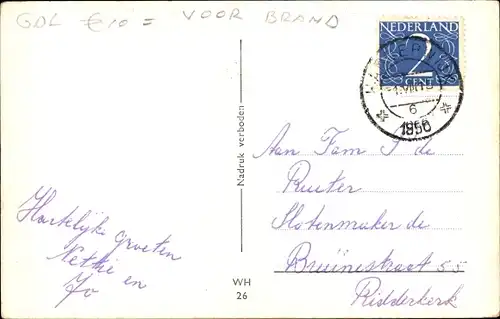 GDL € 10 = VOOR BRAND
NEDERLAND
2
CENT
6
1950
Nadruk verboden
Aan Fam J de
Ruiter
Slotenmaker de
Bruïnestraat 55
Ridderkerk
Hartelijke groeten
Nettie en
Jo
WH
26